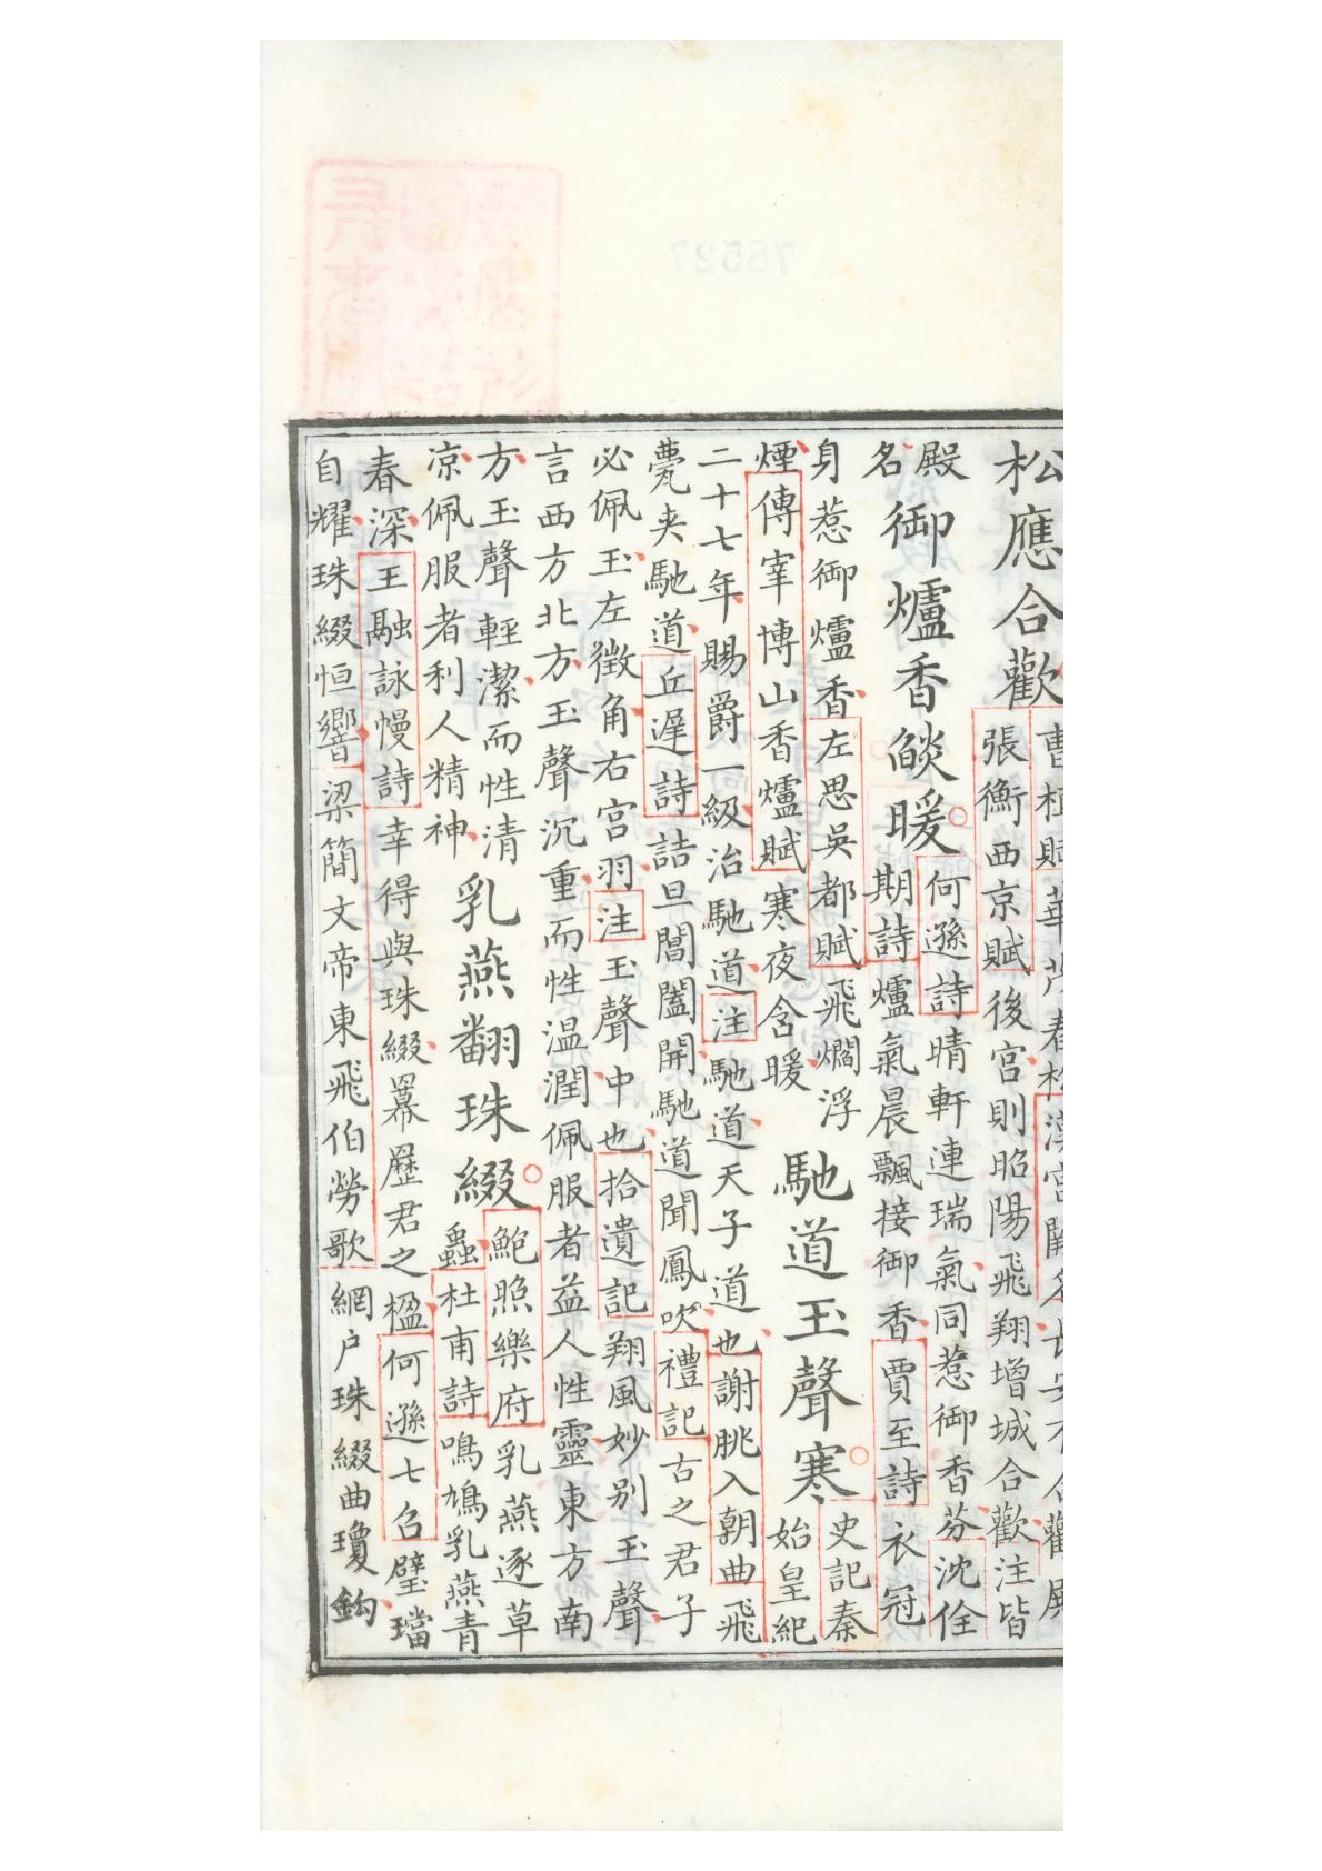 松應合歡
曹植賦華茂春松漢宮闕名長安有合歡殿
張衡西京賦後宮則昭陽飛翔增城合歡注皆
殿
名
御爐香燄暖
何遜詩晴軒連瑞氣同惹御香芬沈佺
期詩爐氣晨飄接御香賈至詩衣冠
身惹御爐香左思吳都賦飛爓浮
煙傅宰博山香爐賦寒夜含暖
馳道玉聲寒
史記秦
始皇紀
二十七年賜爵一級治馳道注馳道天子道也謝朓入朝曲飛
甍夾馳道丘遲詩詰旦閶闔開馳道聞鳳吹禮記古之君子
必佩玉左徵角右宮羽注玉聲中也拾遺記翔風妙別玉聲
言西方北方玉聲沉重而性温潤佩服者益人性靈東方南
方玉聲輕潔而性清
凉佩服者利人精神
乳燕翻珠綴
鮑照樂府乳燕逐草
蟲杜甫詩鳴鳩乳燕青
春深王融詠幔詩幸得與珠綴羃歷君之楹何遜七召璧璫
自耀珠綴恒響梁簡文帝東飛伯勞歌網户珠綴曲瓊鈎